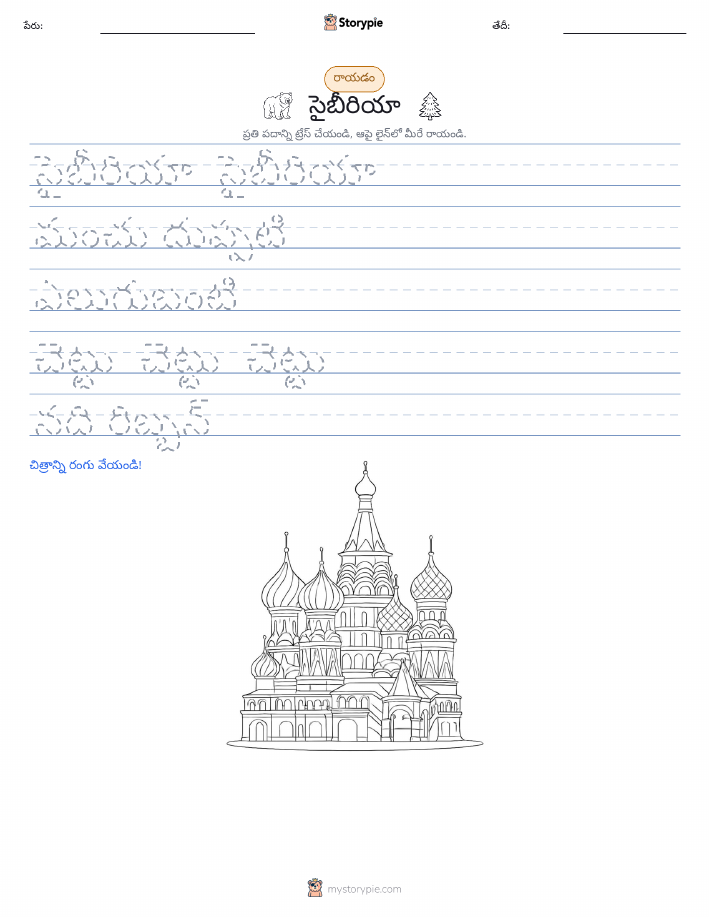 పేరు:
Storypie
తేదీ:
రాయడం
సైబీరియా
ప్రతి పదాన్ని ట్రేస్ చేయండి, ఆపై లైన్‌లో మీరే రాయండి.
సైబీరియా సైబీరియా
మంచు దుప్పటి
ఎలుగుబంటి
చెట్టు చెట్టు చెట్టు
నది రిబ్బన్
చిత్రాన్ని రంగు వేయండి!
mystorypie.com